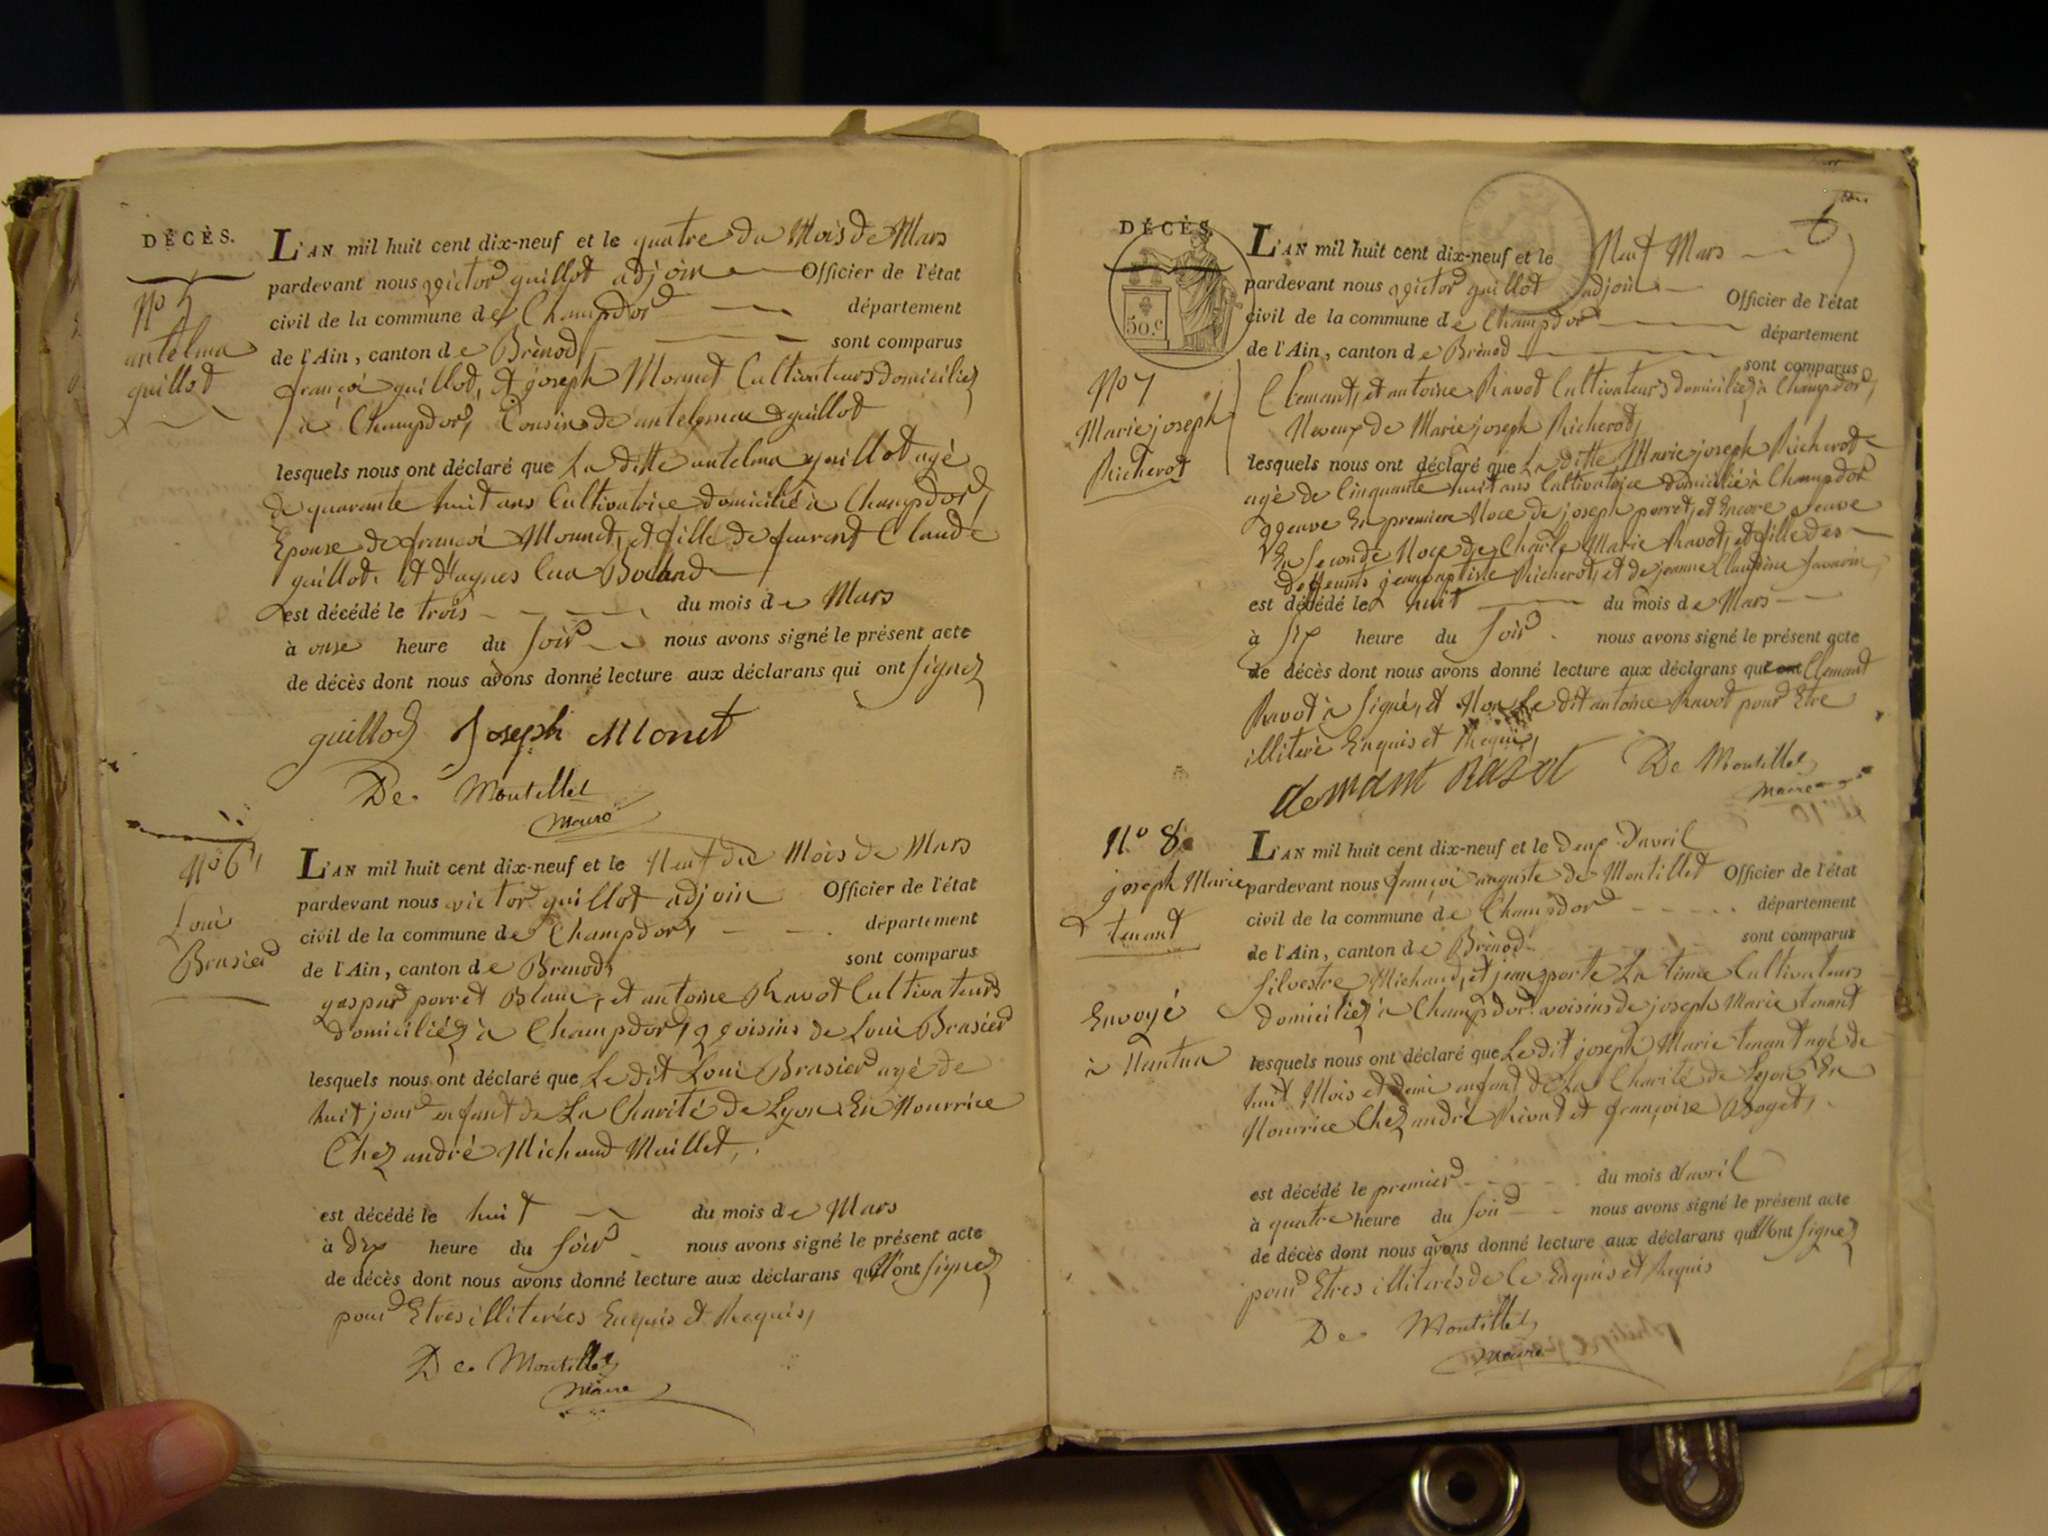 DÉCÈS.
Nº 5
antelma
guillot
L'AN mil huit cent dix-neuf et le quatre du Mois de Mars
pardevant nous victor guillot adjoin Officier de l'état
civil de la commune de Champdor département
de l'Ain, canton de Brénod sont comparus
françoi guillot, et joseph Monnet Cultivateurs domiciliez
à Champdor, Cousins de antelma guillot
lesquels nous ont déclaré que La ditte antelma guillot agé
de quarante huit ans Cultivatrice domicilié à Champdor,
Epouse de françoi Monnet, et fille de Claude
guillot et
est décédé le trois du mois de Mars
à onse heure du soir nous avons signé le présent acte
de décès dont nous avons donné lecture aux déclarans qui ont signez
guillod Joseph Monet
De Montillet
maire
Nº 6
Loui
Brasier
L'AN mil huit cent dix-neuf et le Neuf du Mois de Mars
pardevant nous victor guillot adjoin Officier de l'état
civil de la commune de Champdor, département
de l'Ain, canton de Brenod, sont comparus
gaspar porret Blanc, et antoine Ravot Cultivateurs
domiciliéz à Champdor, voisins de Loui Brasier
lesquels nous ont déclaré que Le dit Loui Brasier agé de
huit jour enfant de La Charité de Lyon En Nourrice
Chez andré Michaud Maillet,
est décédé le huit du mois de Mars
à dix heure du soir nous avons signé le présent acte
de décès dont nous avons donné lecture aux déclarans qui N'ont signez
pour Etres illiterées Enquis et Requis,
De Montillet
maire
DÉCÈS.
50.c
Nº 7
Marie joseph
Richerot
L'AN mil huit cent dix-neuf et le Neuf Mars
pardevant nous victor guillot adjoin Officier de l'état
civil de la commune de Champdor département
de l'Ain, canton de Brénod sont comparus
Clemant, et antoine Ravot Cultivateurs domiciliez à Champdor,
Neveux de Marie joseph Richerot,
lesquels nous ont déclaré que La ditte Marie joseph Richerot
agé de Cinquante huit ans Cultivatrice domicilié à Champdor
veuve En premiere Noce de joseph porret, et Encore veuve
En seconde Noce de Charle Marie Ravot, et fille des
deffeunts jean baptiste Richerot, et de jeanne Claudine Savarin,
est décédé le huit du mois de Mars
à six heure du soir nous avons signé le présent acte
de décès dont nous avons donné lecture aux déclarans que Clemant
Ravot à signé, et Non Le dit antoine Ravot pour Etre
illiteré Enquis et Requis,
clemant Ravot De Montillet
maire
Nº 8
joseph Marie
tenant
Envoyé
à Nantua
L'AN mil huit cent dix-neuf et le deux D'avril
pardevant nous françoi auguste de Montillet Officier de l'état
civil de la commune de Champdor département
de l'Ain, canton de Brénod sont comparus
silvestre Michaud, et jean porte La time Cultivateurs
domiciliez à Champdor voisins de joseph Marie tenant
lesquels nous ont déclaré que Le dit joseph Marie tenant agé de
huit Mois et demi enfant de La Charité de Lyon En
Nourrice Chez andré et françoise
est décédé le premier du mois d'avril
à quatre heure du soir nous avons signé le présent acte
de décès dont nous avons donné lecture aux déclarans qui N'ont signez
pour Etres illiterés de Ce Enquis et Requis
De Montillet
maire